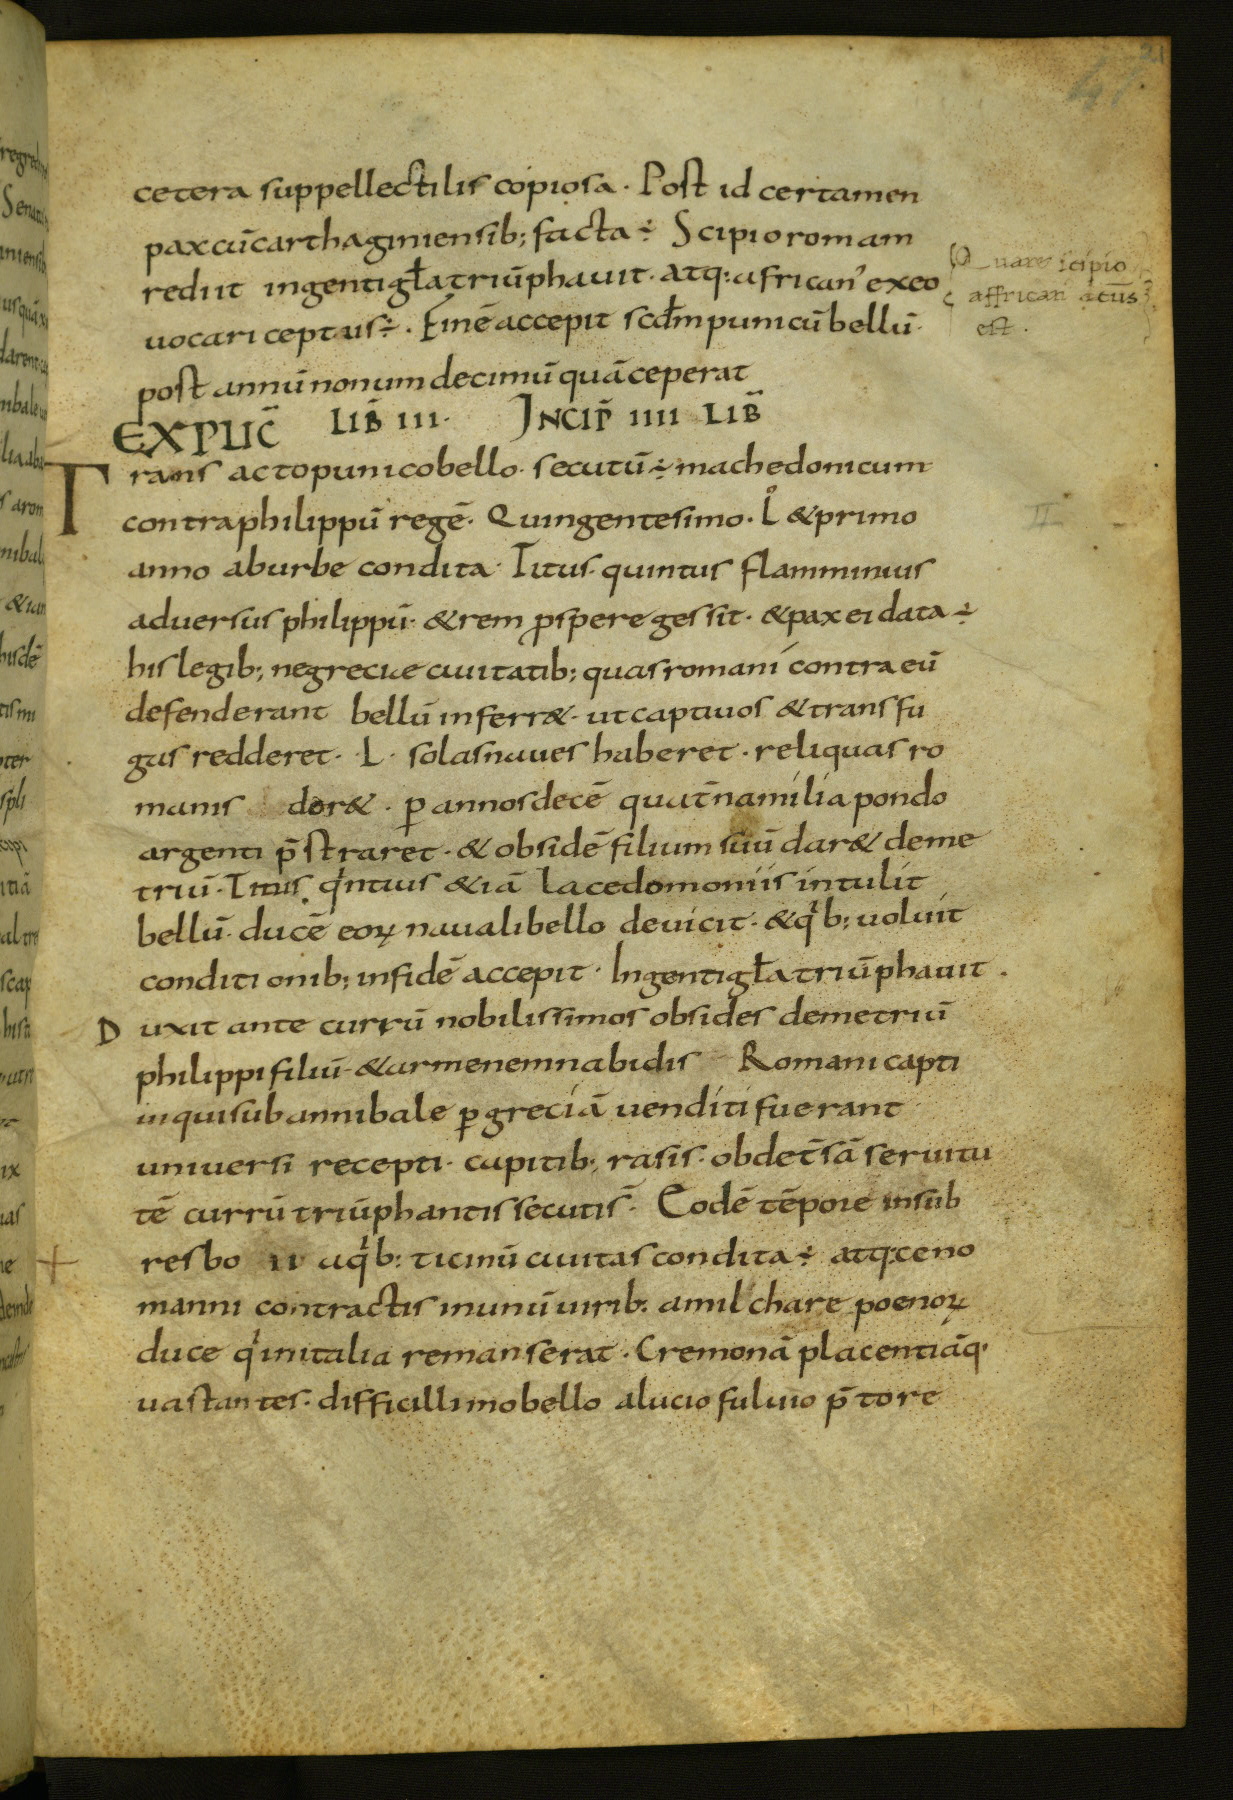 21
cetera suppellectilis copiosa · Post id certamen
pax cū carthaginiensib; facta ÷ Scipio romam
rediit ingenti gła triūphauit · atq: african' exeo
uocari ceptus ÷ · Finē accepit scdm punicū bellū ·
post annū nonum decimū quā ceperat
EXPLIC̄ LIB̄ III · INCIP̄ IIII LIB̄
Trans acto punico bello · secutū ÷ machedonicum
contra philippū regē · Quingentesimo · L̊ & primo
anno ab urbe condita · Titus · quintus flamminius
aduersus philippū · & rem ꝓspere gessit · & pax ei data ÷
his legib; ne greciae ciuitatib; quas romani contra eū
defenderant bellū inferr& · ut captiuos & transfu
gas redderet · L · solas naues haberet · reliquas ro
manis der& · ꝑ annos decē quat̄na milia pondo
argenti p̄straret · & obsidē filium suū dar& deme
triū · Titus qͥntius &iā lacedomoniis intulit
bellū · ducē eoꝝ nauali bello deuicit · & qͥb; uoluit
conditionib; in fidē accepit · Ingenti gła triūphauit ·
Duxit ante currū nobilissimos obsides demetriū
philippi filiū · & armenem nabidis Romani capti
ui qui sub annibale ꝑ greciā uenditi fuerant
uniuersi recepti · capitib; rasis · ob det̄sā seruitu
tē currū triūphantis secuti s̄ · Eodē tēpore insub
res bo ii aqͥb: ticinū ciuitas condita ÷ atq: ceno
manni contractis in unū uirib: amilchare poenoꝝ
duce qͥ in italia remanserat · Cremonā placentiāq·
uastantes · difficillimo bello a lucio fuluio p̄tore
Quare scipio
affrican' atus
est ·
II